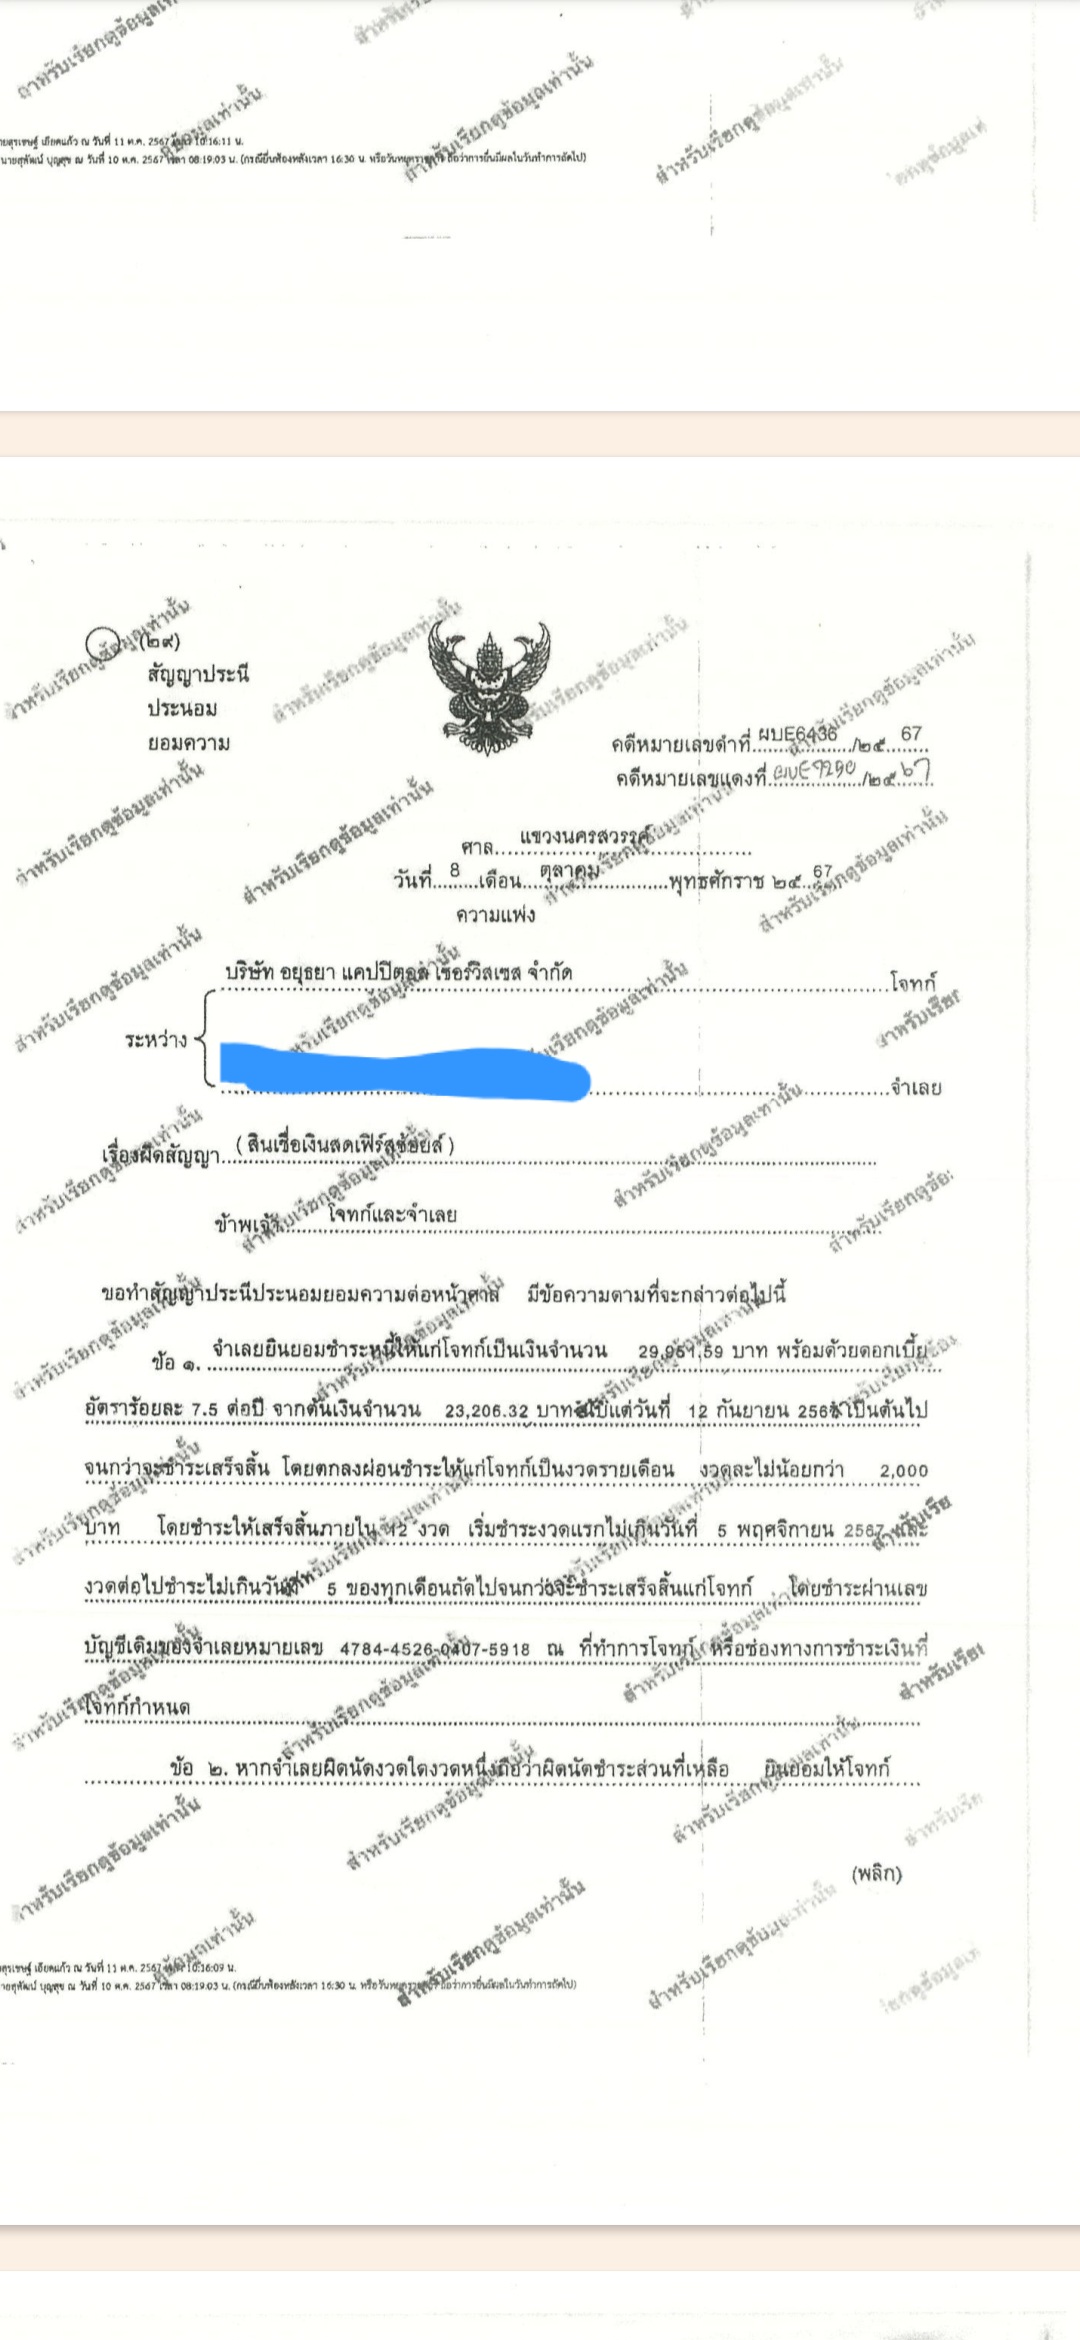 สำหรับเรียกดูข้อมูลเท่านั้น
ายสุรเชษฐ์ เอียดแก้ว ณ วันที่ 11 ต.ค. 2567 เวลา 10:16:11 น.
นายสุพัฒน์ บุญสุข ณ วันที่ 10 ต.ค. 2567 เวลา 08:19:03 น. (กรณียื่นฟ้องหลังเวลา 16:30 น. หรือวันหยุดราชการ ถือว่าการยื่นมีผลในวันทำการถัดไป)
(๒๙)
สัญญาประนี
ประนอม
ยอมความ
คดีหมายเลขดำที่ ผบE6436 /๒๕ 67
คดีหมายเลขแดงที่ /๒๕ ๖๗
ศาล แขวงนครสวรรค์
วันที่ 8 เดือน ตุลาคม พุทธศักราช ๒๕ 67
ความแพ่ง
บริษัท อยุธยา แคปปิตอล เซอร์วิสเซส จำกัด โจทก์
ระหว่าง
จำเลย
เรื่องผิดสัญญา (สินเชื่อเงินสดเฟิร์สช้อยส์)
ข้าพเจ้า โจทก์และจำเลย
ขอทำสัญญาประนีประนอมยอมความต่อหน้าศาล มีข้อความตามที่จะกล่าวต่อไปนี้
ข้อ ๑. จำเลยยินยอมชำระหนี้ให้แก่โจทก์เป็นเงินจำนวน 29,951.59 บาท พร้อมด้วยดอกเบี้ย
อัตราร้อยละ 7.5 ต่อปี จากต้นเงินจำนวน 23,206.32 บาท นับแต่วันที่ 12 กันยายน เป็นต้นไป
จนกว่าจะชำระเสร็จสิ้น โดยตกลงผ่อนชำระให้แก่โจทก์เป็นงวดรายเดือน งวดละไม่น้อยกว่า 2,000
บาท โดยชำระให้เสร็จสิ้นภายใน 12 งวด เริ่มชำระงวดแรกไม่เกินวันที่ 5 พฤศจิกายน 2567 และ
งวดต่อไปชำระไม่เกินวันที่ 5 ของทุกเดือนถัดไปจนกว่าจะชำระเสร็จสิ้นแก่โจทก์ โดยชำระผ่านเลข
บัญชีเดิมของจำเลยหมายเลข 4784-4526-0407-5918 ณ ที่ทำการโจทก์ หรือช่องทางการชำระเงินที่
โจทก์กำหนด
ข้อ ๒. หากจำเลยผิดนัดงวดใดงวดหนึ่งถือว่าผิดนัดชำระส่วนที่เหลือ ยินยอมให้โจทก์
(พลิก)
สุรเชษฐ์ เอียดแก้ว ณ วันที่ 11 ต.ค. 2567 เวลา 10:16:09 น.
ายสุพัฒน์ บุญสุข ณ วันที่ 10 ต.ค. 2567 เวลา 08:19:03 น. (กรณียื่นฟ้องหลังเวลา 16:30 น. หรือวันหยุดราชการ ถือว่าการยื่นมีผลในวันทำการถัดไป)